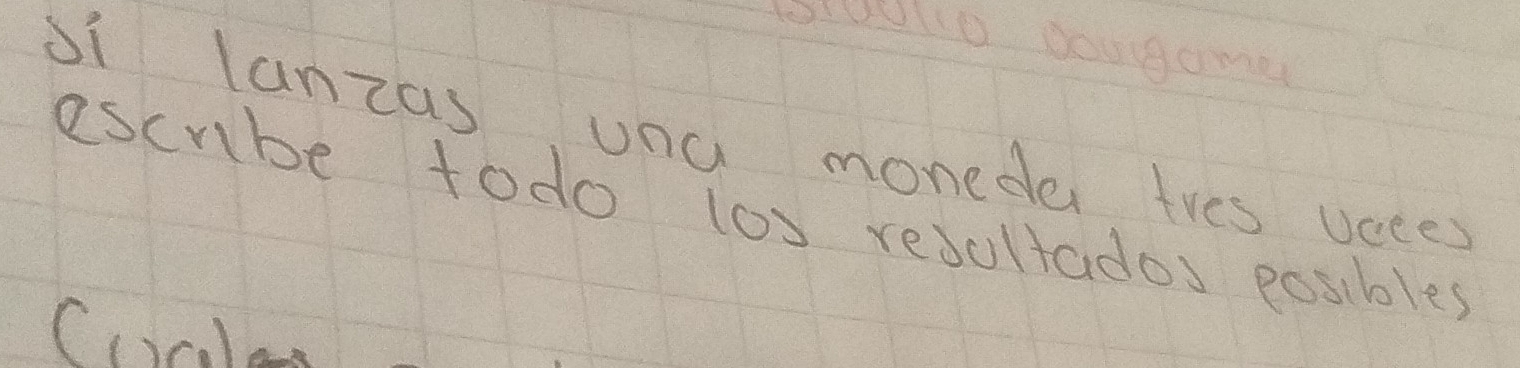 si lanzas una moneda tres veces
escribe todo los resultados posibles